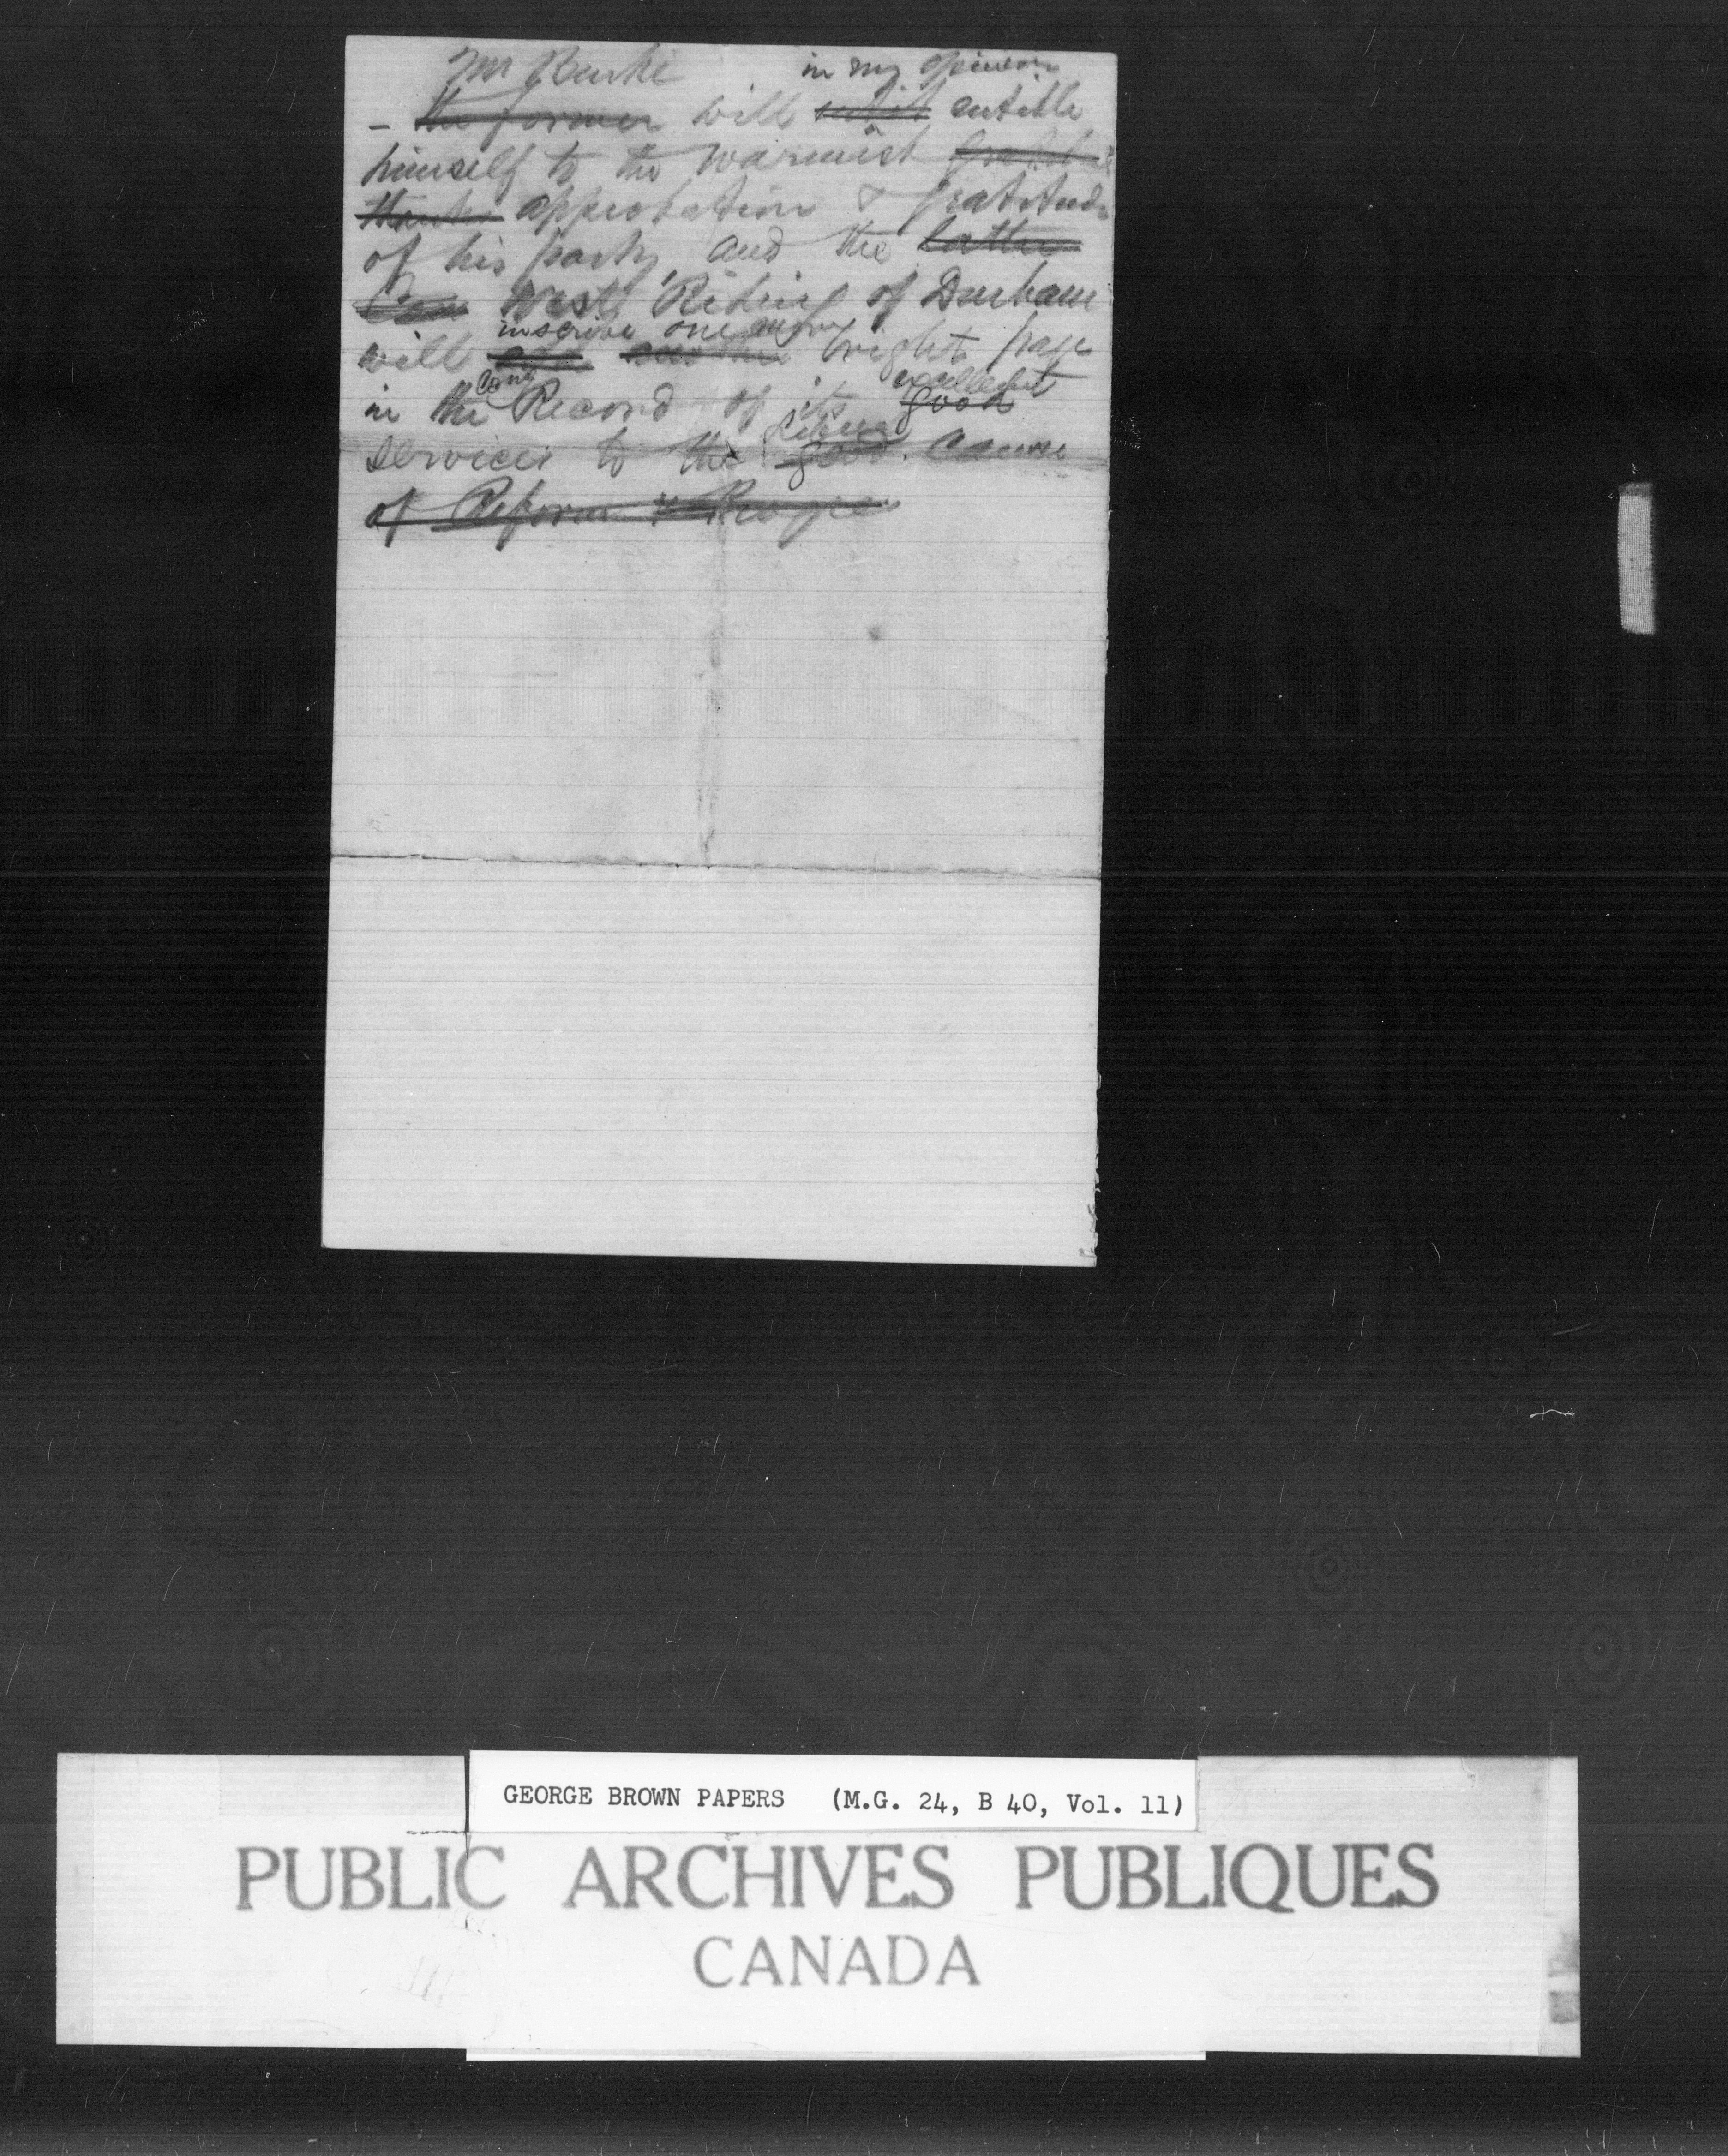 Mr Burke in my opinion
– the former will entitle
himself to the warmest
thanks approbation & gratitude
of his party and the latter
West Riding of Durham
inscribe one more
will bright page
long excellent
in the Record of its good
Liberal
services to the good cause
of Reform &
GEORGE BROWN PAPERS (M.G. 24, B 40, Vol. 11)
PUBLIC ARCHIVES PUBLIQUES
CANADA